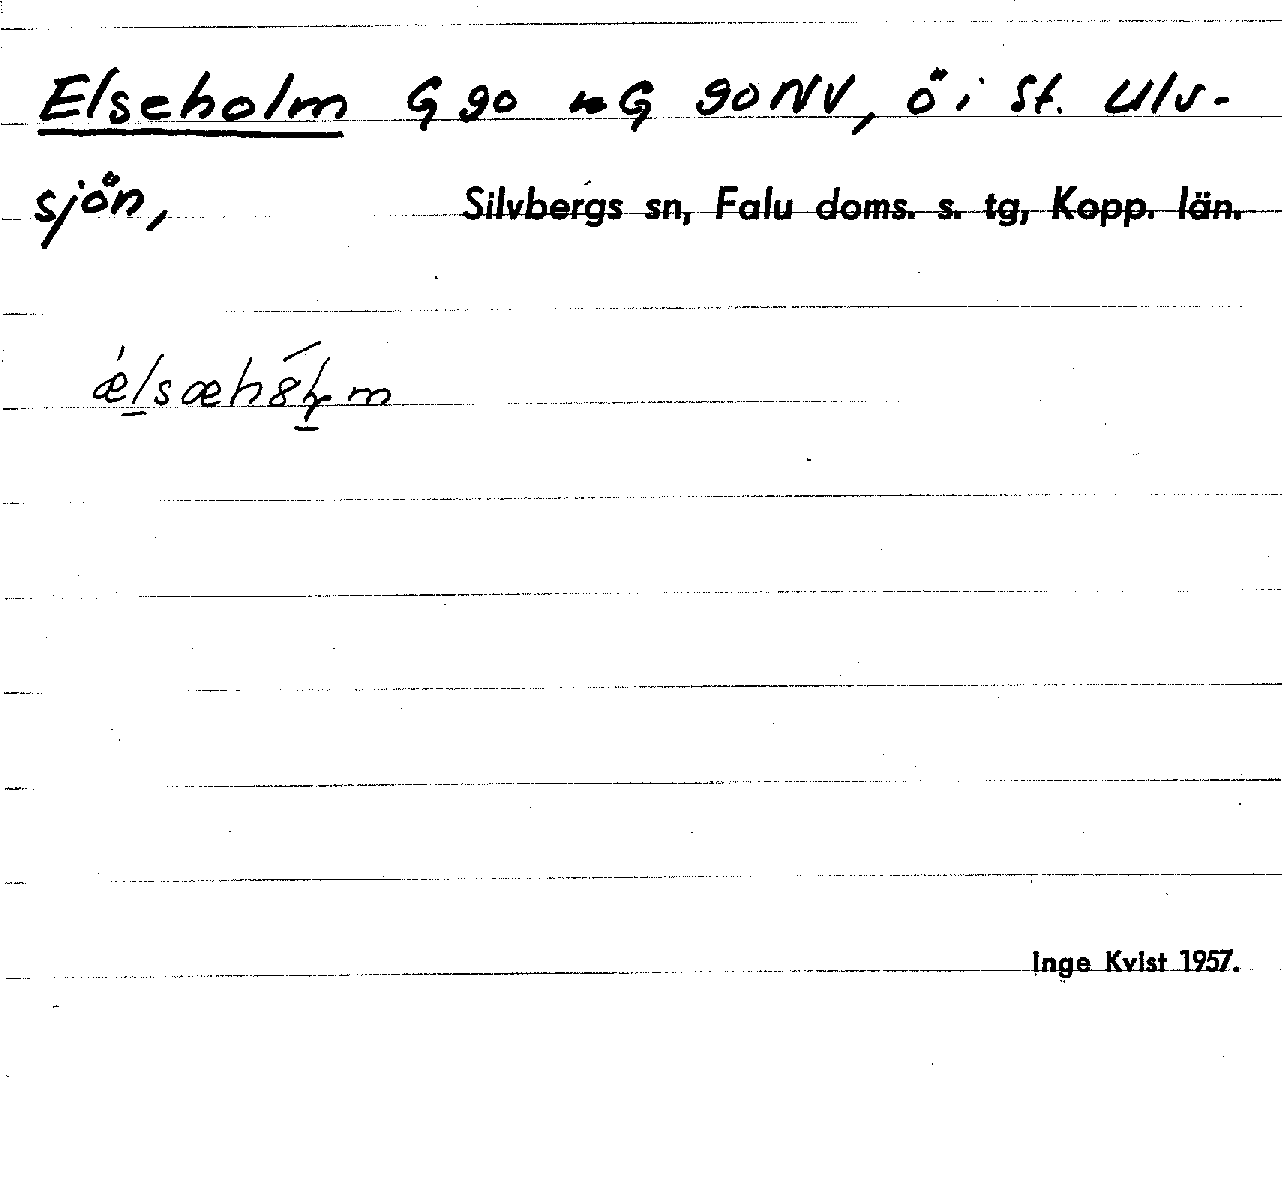 Elseholm G 90 G 90 NV, ö i St. Ulv-
sjön, Silvbergs sn, Falu doms. s. tg, Kopp. län.
Inge Kvist 1957.